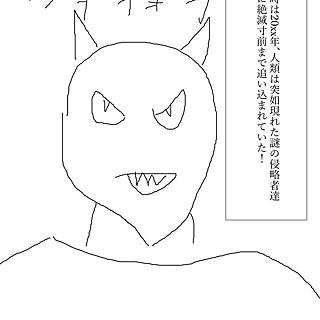 時は20xx年、人類は突如現れた謎の侵略者達
に絶滅寸前まで追い込まれていた！